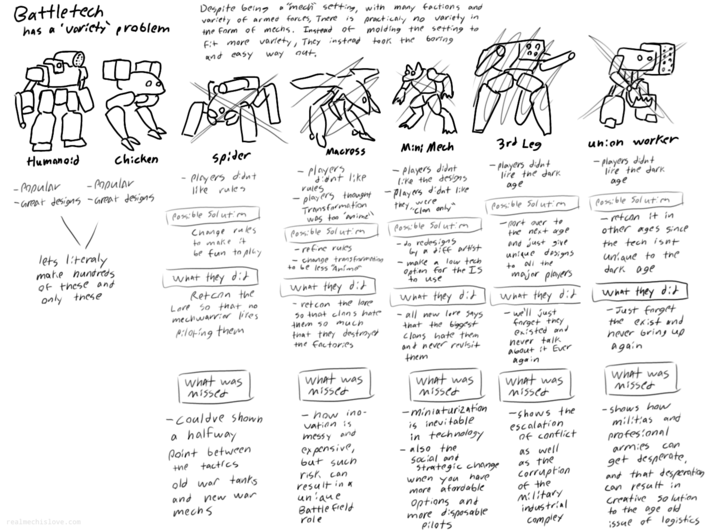 Battletech
has a "variety" problem
Despite being a "mech" setting, with many factions and
variety of armed forces, There is practicaly no variety in
the form of mechs. Instead of molding the setting to
fit more variety, They instead took the boring
and easy way out.
Humanoid
- Popular
- Great designs
Chicken
- Popular
- Great designs
lets literaly
make hundreds
of these and
only these
Spider
- players didnt
like rules
Possible Solution
Change rules
to make it
be fun to play
What they did
Retcon the
Lore so that no
mechwarrior likes
piloting them
What was
missed
- Couldve shown
a halfway
point between
the tactics
old war tanks
and new war
mechs
Macross
- players
didnt like
rules
- players thought
Transformation
was too "anime"
Possible Solution
- refine rules
- change transformation
to be less "Anime"
What they did
- retcon the lore
so that clans hate
them so much
that they destroyed
the factories
What was
missed
- how ino-
vation is
messy and
expensive,
but such
risk can
result in a
unique
Battlefield
role
Mini Mech
- players didnt
like the designs
- Players didnt like
they were
"Clan only"
Possible Solution
- do redesigns
by a diff artist
- make a low tech
option for the IS
to use
What they did
- all new lore says
that the biggest
clans hate them
and never revisit
them
What was
missed
- miniaturization
is inevitable
in technology
- also the
social and
strategic change
when you have
more afordable
options and
more disposable
pilots
3rd Leg
- players didnt
like the dark
age
Possible Solution
- port over to
the next age
and just give
unique designs
to all the
major players
What they did
- we'll just
forget they
existed and
never talk
about it Ever
again
What was
missed
- shows the
escalation
of conflict
as well
as the
corruption
of the
Military
industrial
complex
union worker
- players didnt
like the dark
age
Possible Solution
- retcon it in
other ages since
the tech isnt
unique to the
dark age
What they did
- Just forget
the exist and
never bring up
again
What was
missed
- shows how
militias and
profesional
armies can
get desperate,
and that desperation
can result in
creative solution
to the age old
issue of logistics
realmechslove.com